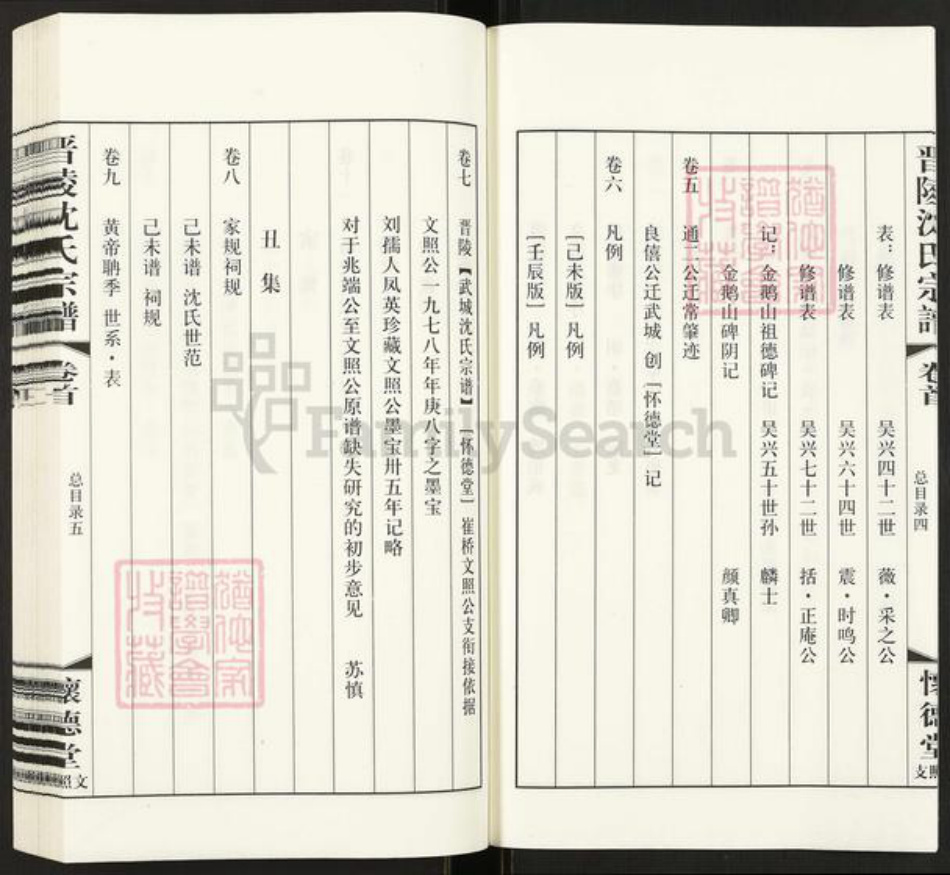 晋陵沈氏宗谱 卷首 总目录四 怀德堂
表：修谱表 吴兴四十二世 薇·采之公
修谱表 吴兴六十四世 震·时鸣公
修谱表 吴兴七十二世 括·正庵公
记：金鹅山祖德碑记 吴兴五十世孙 麟士
金鹅山碑阴记 颜真卿
卷五 通二公迁常肇迹
良僖公迁武城 创［怀德堂］记
卷六 凡例
［己未版］凡例
［壬辰版］凡例
卷七 晋陵【武城沈氏宗谱】［怀德堂］崔桥文照公支衔接依据
文照公一九七八年年庚八字之墨宝
刘孺人凤英珍藏文照公墨宝卅五年记略
对于兆端公至文照公原谱缺失研究的初步意见 苏慎
丑集
卷八 家规祠规
己未谱 沈氏世范
己未谱 祠规
卷九 黄帝聃季 世系·表
晋陵沈氏宗谱 卷首 总目录五 怀德堂 文照
FamilySearch